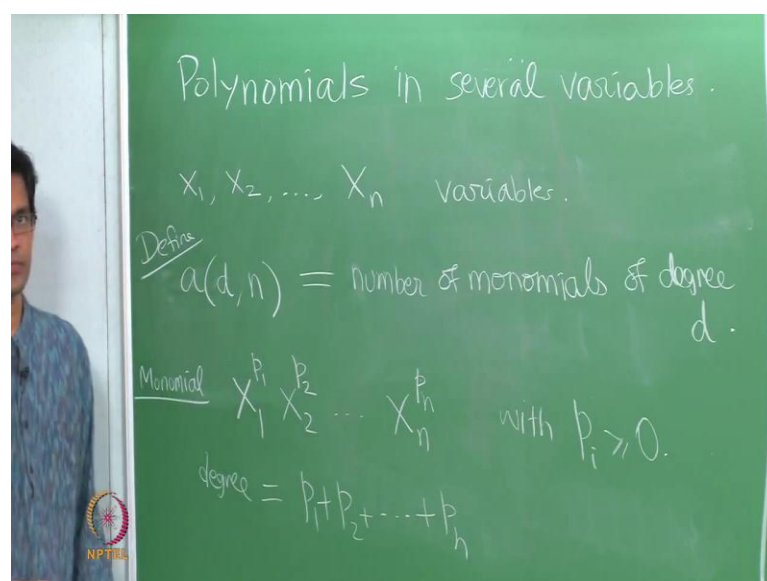 Polynomials in several variables.
X₁, X₂, ..., Xₙ variables.
Define
a(d,n) = number of monomials of degree
d.
Monomial X₁^p₁ X₂^p₂ ... Xₙ^pₙ with pᵢ ≥ 0.
degree = p₁+p₂+----+pₙ
NPTEL